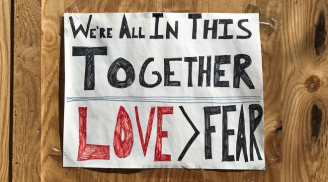 WE'RE ALL IN THIS
TOGETHER
LOVE>FEAR